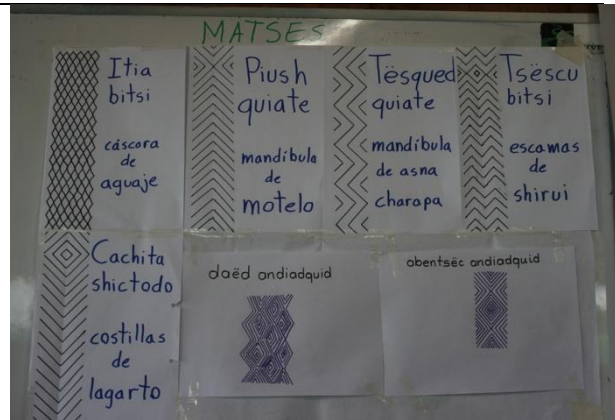 MATSES
Itia
bitsi
cáscora
de
aguaje
Piush
quiate
mandíbula
de
motelo
Tësqued
quiate
mandíbula
de asna
charapa
Tsëscu
bitsi
escamas
de
shirui
Cachita
shictodo
costillas
de
lagarto
daëd andiadquid
abentsëc andiadquid